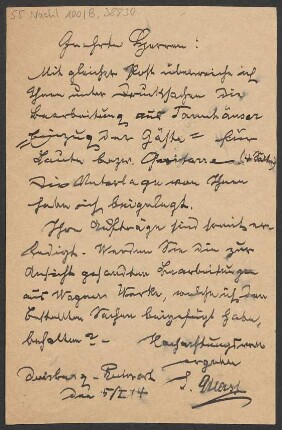 55 Nachl 100/B, 38830
Geehrte Herren!
Mit gleicher Post überreiche ich
Ihnen unter Drucksachen die
Bearbeitung aus Tannhäuser
"Einzug der Gäste" für
Laute bezw. Guitarre
Die Unterlage von Ihnen
habe ich beigelegt.
Ihre Aufträge sind somit er-
ledigt. Werden Sie die zur
Ansicht gesandten Bearbeitungen
aus Wagners Werke, welche ich den
bestellten Sachen beigefügt habe,
behalten? - Hochachtungsvoll
ergeben
Duisburg - Ruhrort
den 5/I 14